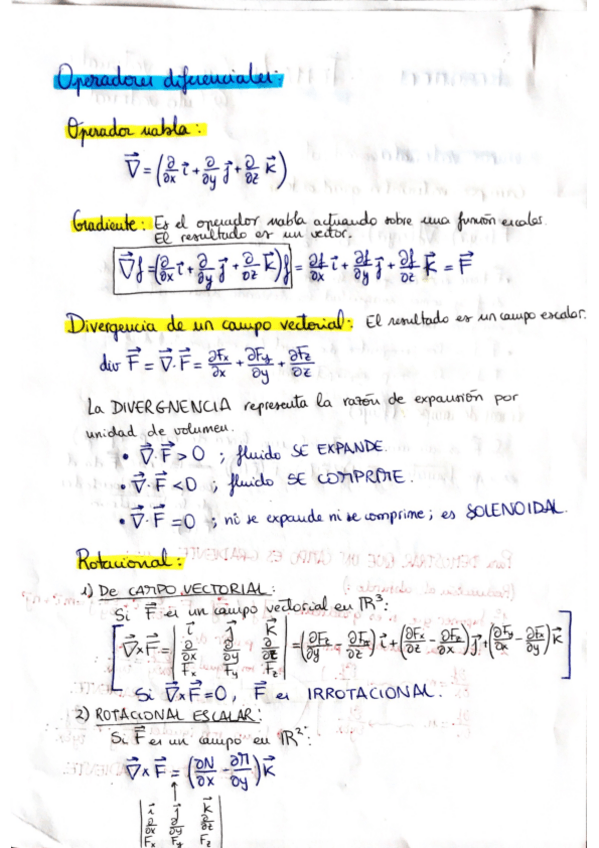 Operadores diferenciales:
Operador nabla:
∇⃗ = (∂/∂x i⃗ + ∂/∂y j⃗ + ∂/∂z k⃗)
Gradiente: Es el operador nabla actuando sobre una función escalar.
El resultado es un vector.
∇⃗f = (∂/∂x i⃗ + ∂/∂y j⃗ + ∂/∂z k⃗)f = ∂f/∂x i⃗ + ∂f/∂y j⃗ + ∂f/∂z k⃗ = F⃗
Divergencia de un campo vectorial: El resultado es un campo escalar.
div F⃗ = ∇⃗·F⃗ = ∂Fx/∂x + ∂Fy/∂y + ∂Fz/∂z
La DIVERGNENCIA representa la razón de expansión por
unidad de volumen.
• ∇⃗·F⃗ > 0 ; fluido SE EXPANDE.
• ∇⃗·F⃗ < 0 ; fluido SE COMPRIME.
• ∇⃗·F⃗ = 0 ; ni se expande ni se comprime; es SOLENOIDAL.
Rotacional:
1) DE CAMPO VECTORIAL:
Si F⃗ es un campo vectorial en ℝ³:
[∇⃗×F⃗ = | i⃗ j⃗ k⃗ ; ∂/∂x ∂/∂y ∂/∂z ; Fx Fy Fz | = (∂Fz/∂y - ∂Fy/∂z) i⃗ + (∂Fx/∂z - ∂Fz/∂x) j⃗ + (∂Fy/∂x - ∂Fx/∂y) k⃗]
Si ∇⃗×F⃗ = 0, F⃗ es IRROTACIONAL.
2) ROTACIONAL ESCALAR:
Si F⃗ es un campo en ℝ²:
∇⃗×F⃗ = (∂N/∂x - ∂M/∂y) k⃗
↑
| i⃗ j⃗ k⃗ |
| ∂/∂x ∂/∂y ∂/∂z |
| Fx Fy Fz |